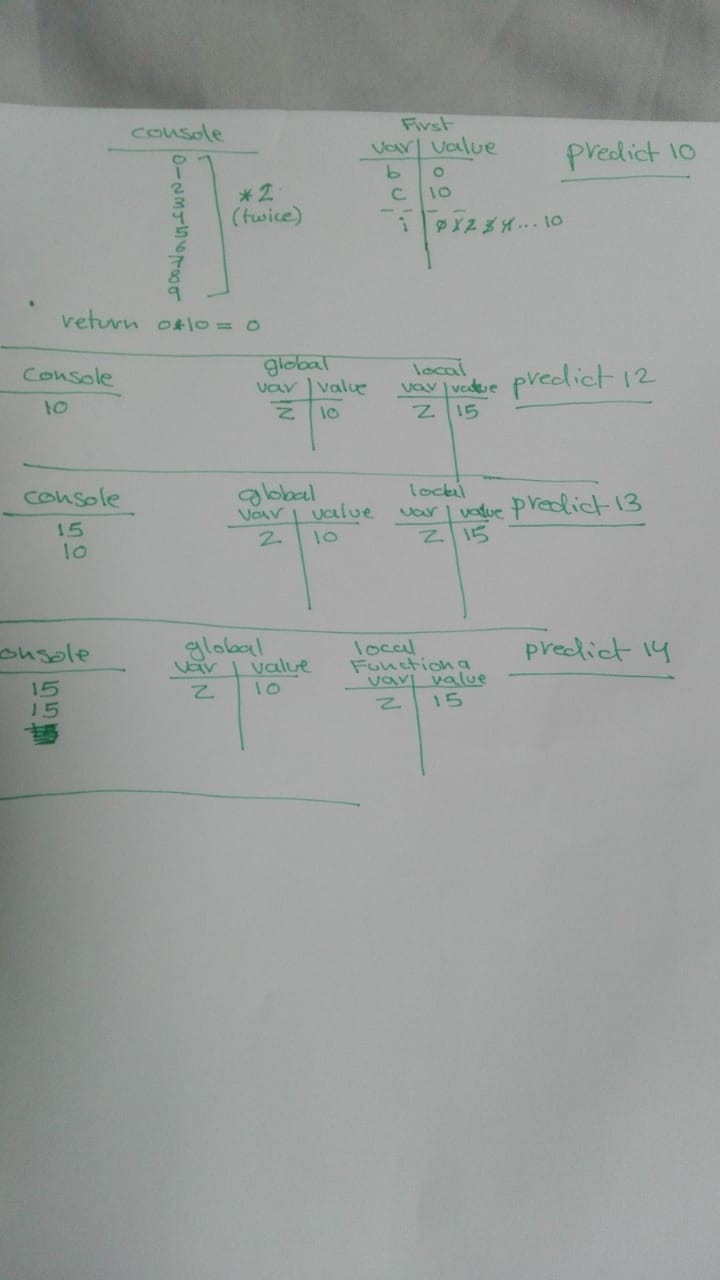 console
0
1
2
3
4
5
6
7
8
9
*2
(twice)
First
var value
b 0
c 10
i 0 1 2 3 4 ... 10
predict 10
return 0*10 = 0
console
10
global
var value
z 10
local
var value
z 15
predict 12
console
15
10
global
var value
z 10
local
var value
z 15
predict 13
onsole
15
15
global
var value
z 10
local
Function a
var value
z 15
predict 14